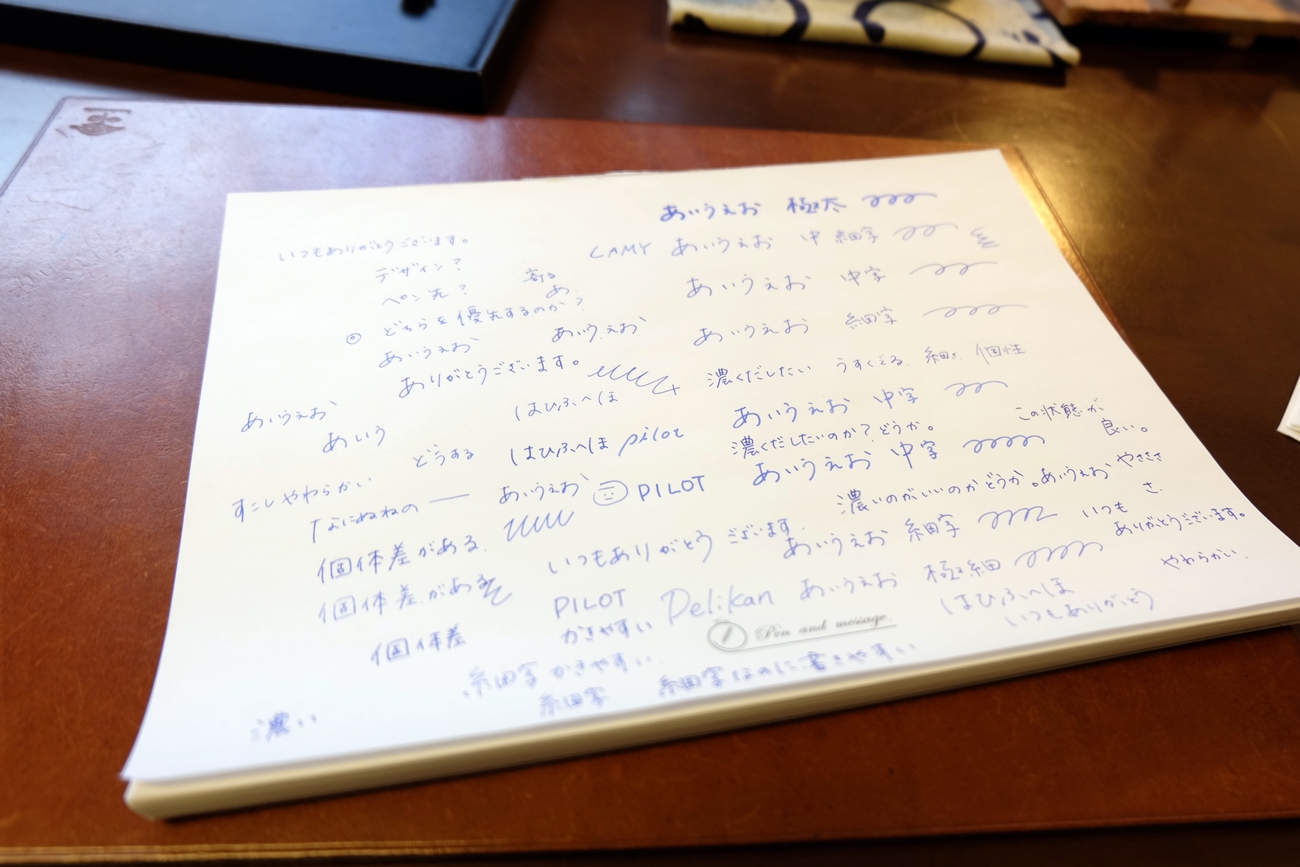 あいうえお 極太
いつもありがとうございます。
LAMY あいうえお 中細字
デザイン？
ペン先？
寄る
あ
あいうえお 中字
◎ どちらを優先するのか？
あいうえお
あいうえお
あいうえお 細字
ありがとうございます。
濃くだしたい うすくでる 細い 個性
はひふへほ
あいうえお
あいう
あいうえお 中字
この状態が
良い。
どうする
はひふへほ pilot
濃くだしたいのか？どうか。
あいうえお 中字
すこしやわらかい
あいうえお
PILOT
濃いのがいいのかどうか。あいうえお
個体差がある
いつもありがとうございます。
あいうえお 細字
いつも
ありがとうございます。
個体差がある
PILOT Pelikan あいうえお 極細
やわらかい
はひふへほ
いつもありがとう
個体差
かきやすい
Pen and message.
細字かきやすい
細字
細字なのに書きやすい
濃い